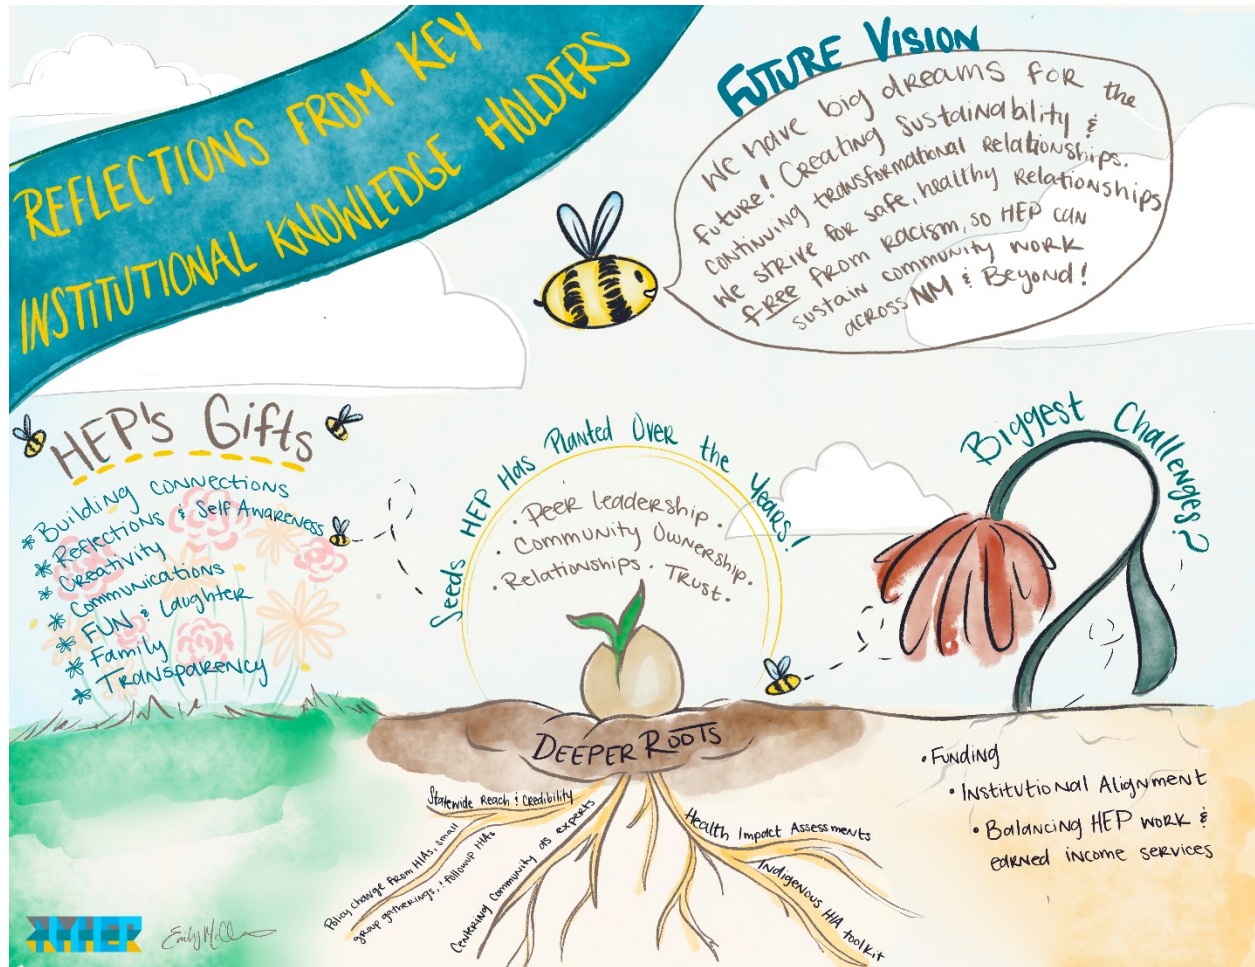 REFLECTIONS FROM KEY
INSTITUTIONAL KNOWLEDGE HOLDERS
FUTURE VISION
We have big dreams for the
future! Creating sustainability &
continuing transformational relationships.
We strive for safe, healthy relationships
free from racism, so HEP can
sustain community work
across NM & Beyond!
HEP's Gifts
* Building connections
* Reflections & Self Awareness
* Creativity
* Communications
* FUN & Laughter
* Family
* Transparency
Seeds HEP Has Planted Over the Years!
· Peer leadership ·
· Community Ownership ·
· Relationships · Trust ·
Biggest Challenges?
DEEPER ROOTS
Statewide Reach & Credibility
Policy change from HIAs, small
group gatherings, & followup HIAs
Centering Community as experts
Health Impact Assessments
Indigenous HIA toolkit
• Funding
• Institutional Alignment
• Balancing HEP work &
earned income services